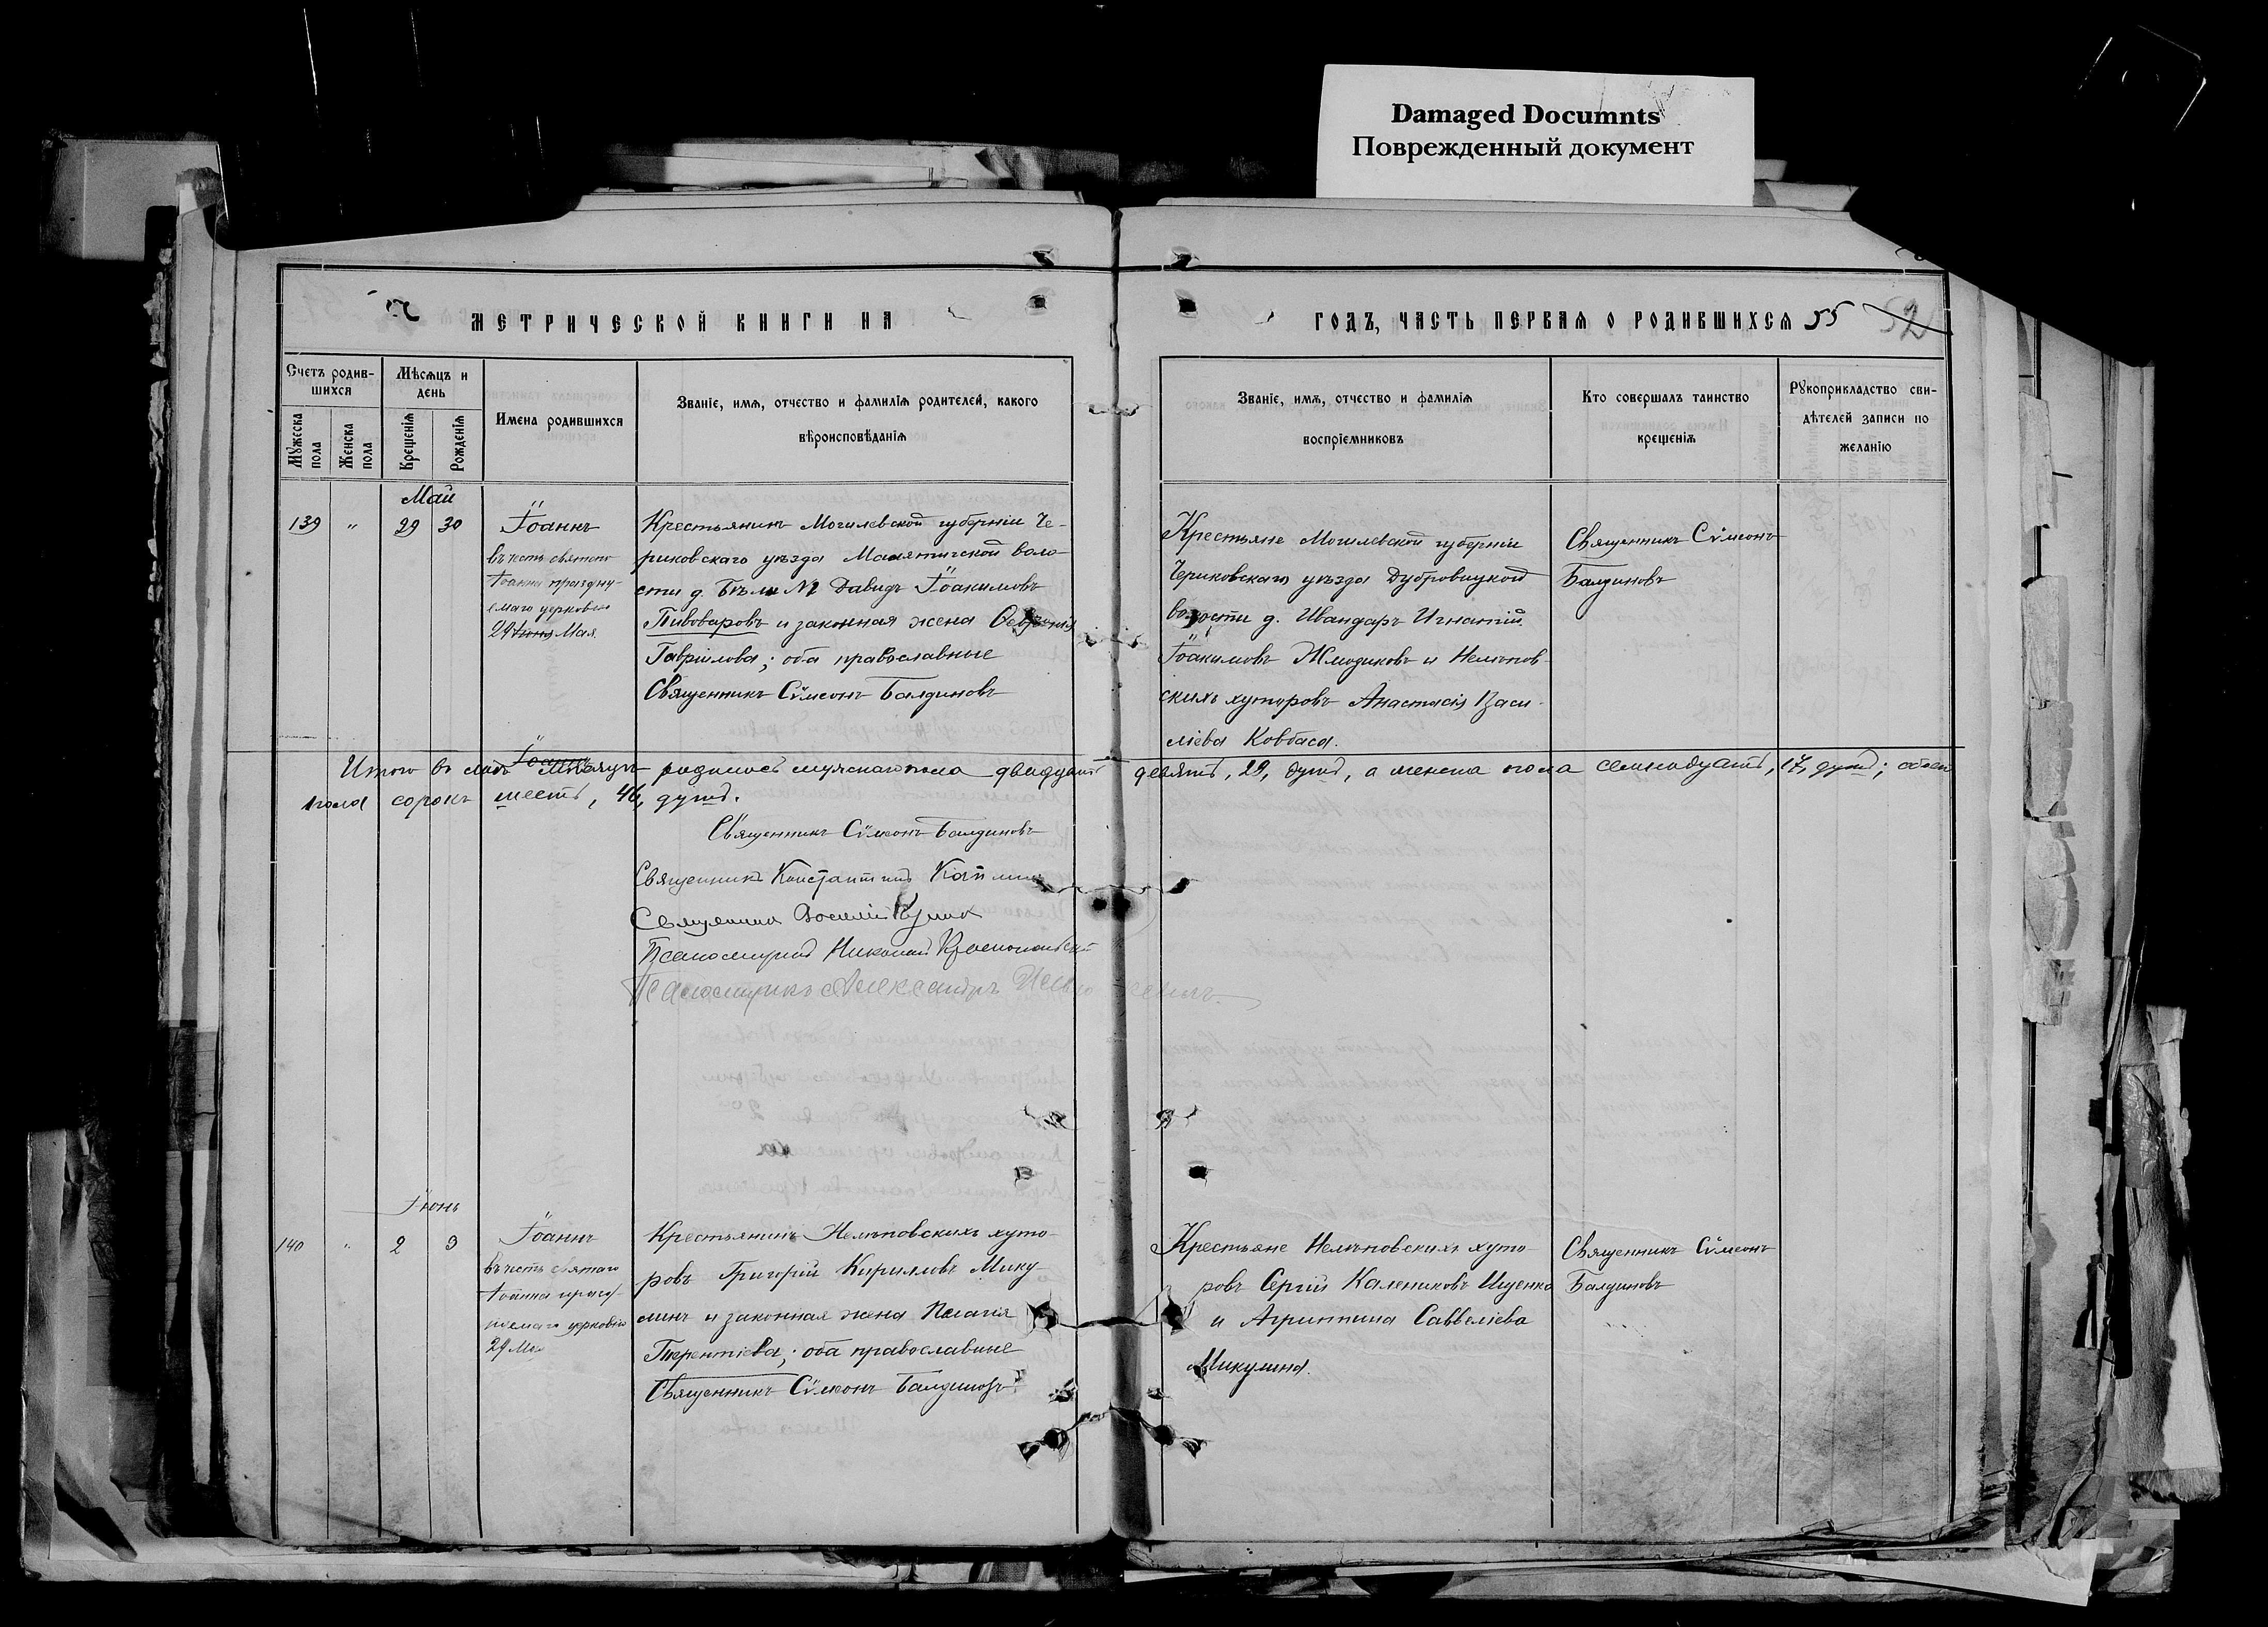 Damaged Documnts
Поврежденный документ
МЕТРИЧЕСКОЙ КНИГИ НА
ГОДЪ, ЧАСТЬ ПЕРВАЯ О РОДИВШИХСЯ 55 52
Счетъ родив-
шихся
Мужеска пола
Женска пола
Мѣсяцъ и
день
Крещенія
Рожденія
Имена родившихся
Званіе, имя, отчество и фамилія родителей, какого
вѣроисповѣданія
Званіе, имя, отчество и фамилія
воспріемниковъ
Кто совершалъ таинство
крещенія
Рукоприкладство сви-
дѣтелей записи по
желанію
Май
139 " 29 30
Іоаннъ
въ честь святого
Іоанна праздну-
емаго церковью
29 Іюня Мая.
Крестьянинъ Могилевской губерніи Че-
риковскаго уѣзда Малятичской воло-
сти д. Давидъ Іоакимовъ
Пивоваровъ и законная жена
Гавріилова; оба православные
Священникъ Сѵмеонъ Балдиновъ
Крестьяне Могилевской губерніи
Чериковскаго уѣзда Дубровицкой
волости д. Ивандаръ Игнатій
Іоакимовъ Жмодиковъ и Нелюбов-
скихъ хуторовъ Анастасія Васи-
ліева Ковбаса.
Священникъ Сѵмеонъ
Балдиновъ
Іоаннъ
Итого въ маѣ мѣсяцѣ родилось мужскаго пола двадцать девять, 29, душъ, а женска пола семнадцать, 17, душъ; обоего
пола сорокъ шесть, 46, душъ.
Священникъ Сѵмеонъ Балдиновъ
Священникъ Константинъ
Священникъ Василій
Псаломщикъ Николай
Псаломщикъ Александръ
Іюнь
140 " 2 3
Іоаннъ
въ честь святаго
Іоанна празд-
нуемаго церковію
29 Мая
Крестьянинъ Нелюбовскихъ хуто-
ровъ Григорій Кирилловъ Мику-
линъ и законная жена Пелагія
Терентіева; оба православные
Священникъ Сѵмеонъ Балдиновъ
Крестьяне Нелюбовскихъ хуто-
ровъ Сергій Калениковъ Ищенко
и Агриппина Савеліева
Микулина.
Священникъ Сѵмеонъ
Балдиновъ